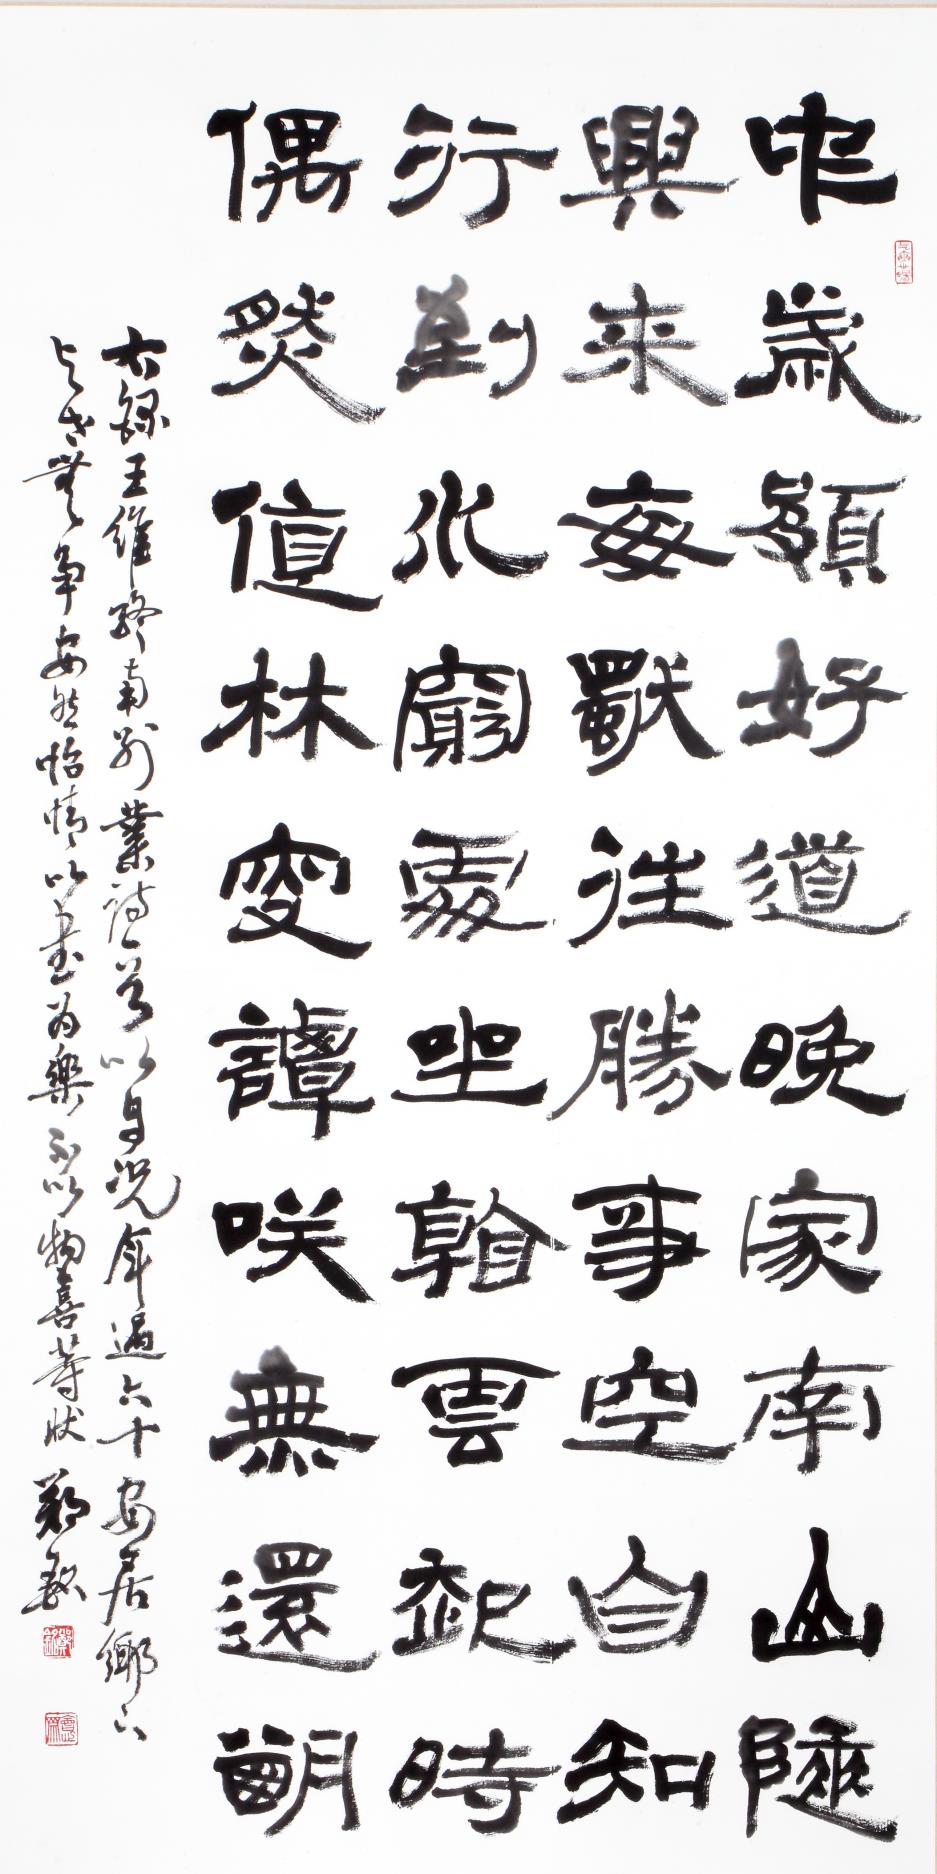 中歲頗好道晚家南山陲
興來每獨往勝事空自知
行到水窮處坐看雲起時
偶然值林叟譚咲無還期
右錄王維終南別業詩一首以自况年過六十安居鄉下
与世無争安然怡情以書為樂不以物喜等狀 鄭